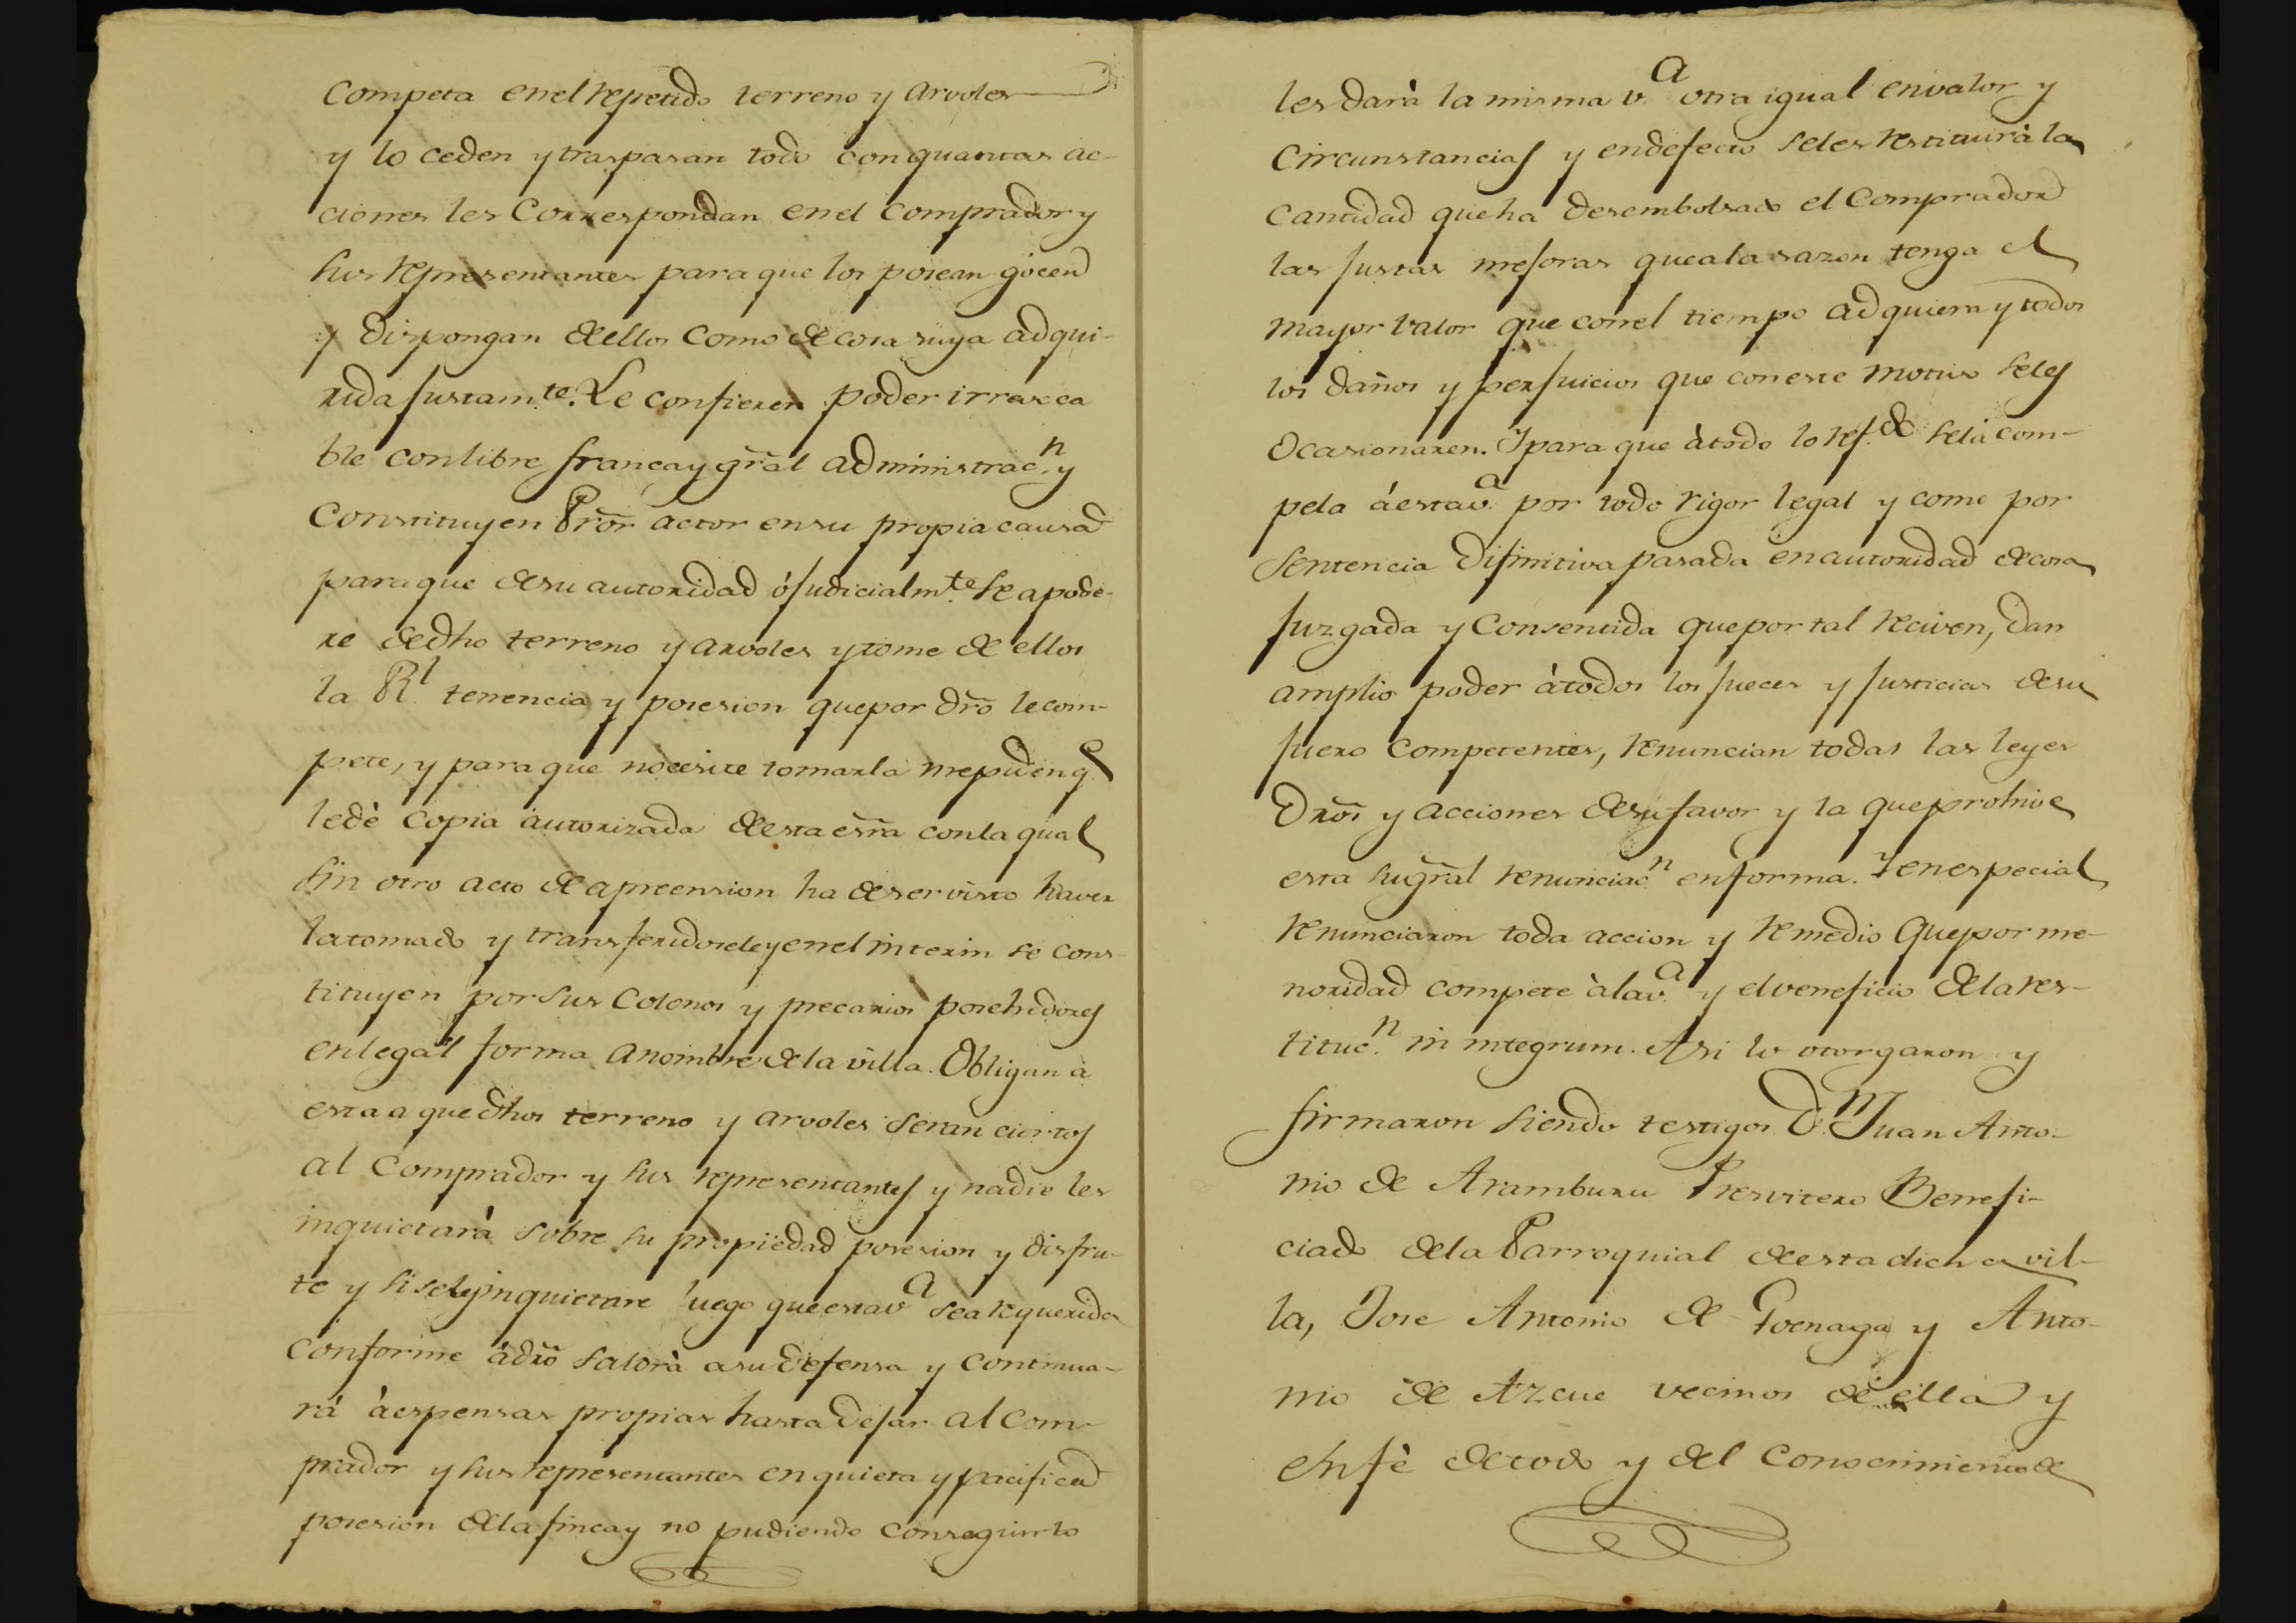 competa enel repetido terreno y arvoles
y lo ceden y traspasan todo con quantas ac-
ciones les correspondan enel comprador y
sus representantes para que los posean gocen
y dispongan dellos como de cosa suya adqui-
rida justam.te Le confieren poder irrevoca
ble con libre franca y grãl administrac.n y
constituyen Prõr actor ensu propia causa
para que desu autoridad ó judicialm.te se apode-
re dedho terreno y arvoles y tome de ellos
la R.l tenencia y posesion que por drõ le com-
pete, y para que no cesite tomarla me piden q.e
ledè copia autorizada de esta esrã con la qual
sin otro acto de apreension ha deser visto haver
la tomado y transferidosele y enel interin se cons-
tituyen por sus colonos y precarios posehedores
en legal forma a nombre dela villa. Obligan à
esta a que dhos terreno y arvoles seran ciertos
al comprador y sus representantes y nadie les
inquietarà sobre su propiedad posesion y disfru-
te y si seles inquietare luego que esta v.a sea requerida
conforme àdrõ saldrà a su defensa y continua-
rá à espensas propias hasta dejar al com-
prador y sus representantes en quieta y pacifica
posesion dela finca y no pudiendo conseguirlo
les darà la misma v.a otra igual en valor y
circunstancias y en defecto seles restituirà la
cantidad que ha desembolsado el comprador
las justas mejoras que a la sazon tenga el
mayor valor que conel tiempo adquiera y todos
los daños y perjuicios que con este motivo seles
ocasionaren. Y para que à todo lo ref.do sela com-
pela á esta v.a por todo rigor legal y como por
sentencia difinitiva pasada en autoridad de cosa
juzgada y consentida que por tal reciven, dan
amplio poder à todos los jueces y justicias desu
fuero competentes, renuncian todas las leyes
drõs y acciones desu favor y la que prohive
esta su grãl renunciac.n en forma. Y en especial
renunciaron toda accion y remedio que por me-
noridad compete à la v.a y el veneficio dela res-
tituc.n in integrum. Asi lo otorgaron y
firmaron siendo testigos D.n Juan Anto-
nio de Aramburu Presvitero Benefi-
ciado dela Parroquial de esta dicha vil-
la, Jose Antonio de Goenaga y Anto-
nio de Azcue vecinos de ella y
en fè de todo y del conocimiento de